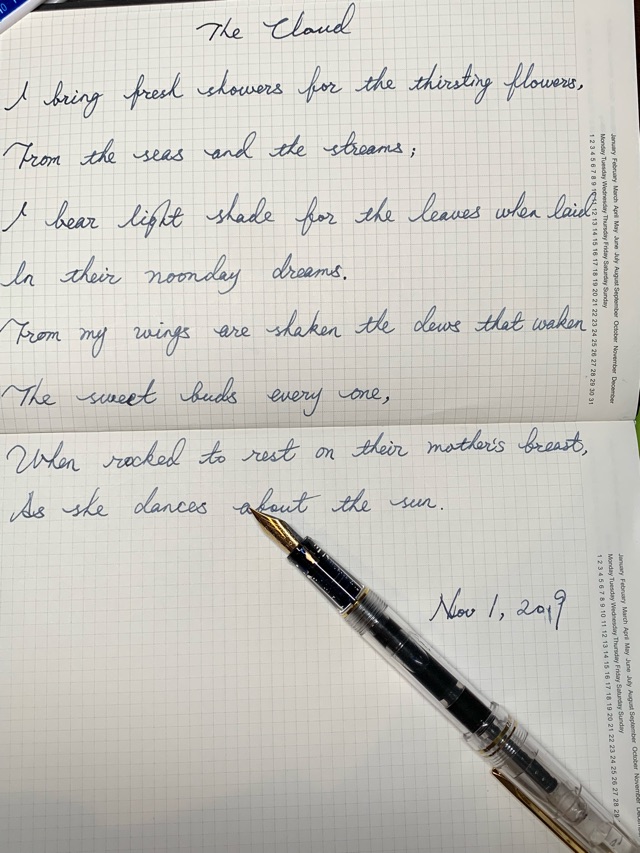 The Cloud
I bring fresh showers for the thirsting flowers,
From the seas and the streams;
I bear light shade for the leaves when laid
In their noonday dreams.
From my wings are shaken the dews that waken
The sweet buds every one,
When rocked to rest on their mother's breast,
As she dances about the sun.
Nov 1, 2019
January February March April May June July August September October November December
Monday Tuesday Wednesday Thursday Friday Saturday Sunday
1 2 3 4 5 6 7 8 9 10 11 12 13 14 15 16 17 18 19 20 21 22 23 24 25 26 27 28 29 30 31
January February March April May June July August September October November
Monday Tuesday Wednesday Thursday Friday Saturday Sunday
1 2 3 4 5 6 7 8 9 10 11 12 13 14 15 16 17 18 19 20 21 22 23 24 25 26 27 28 29